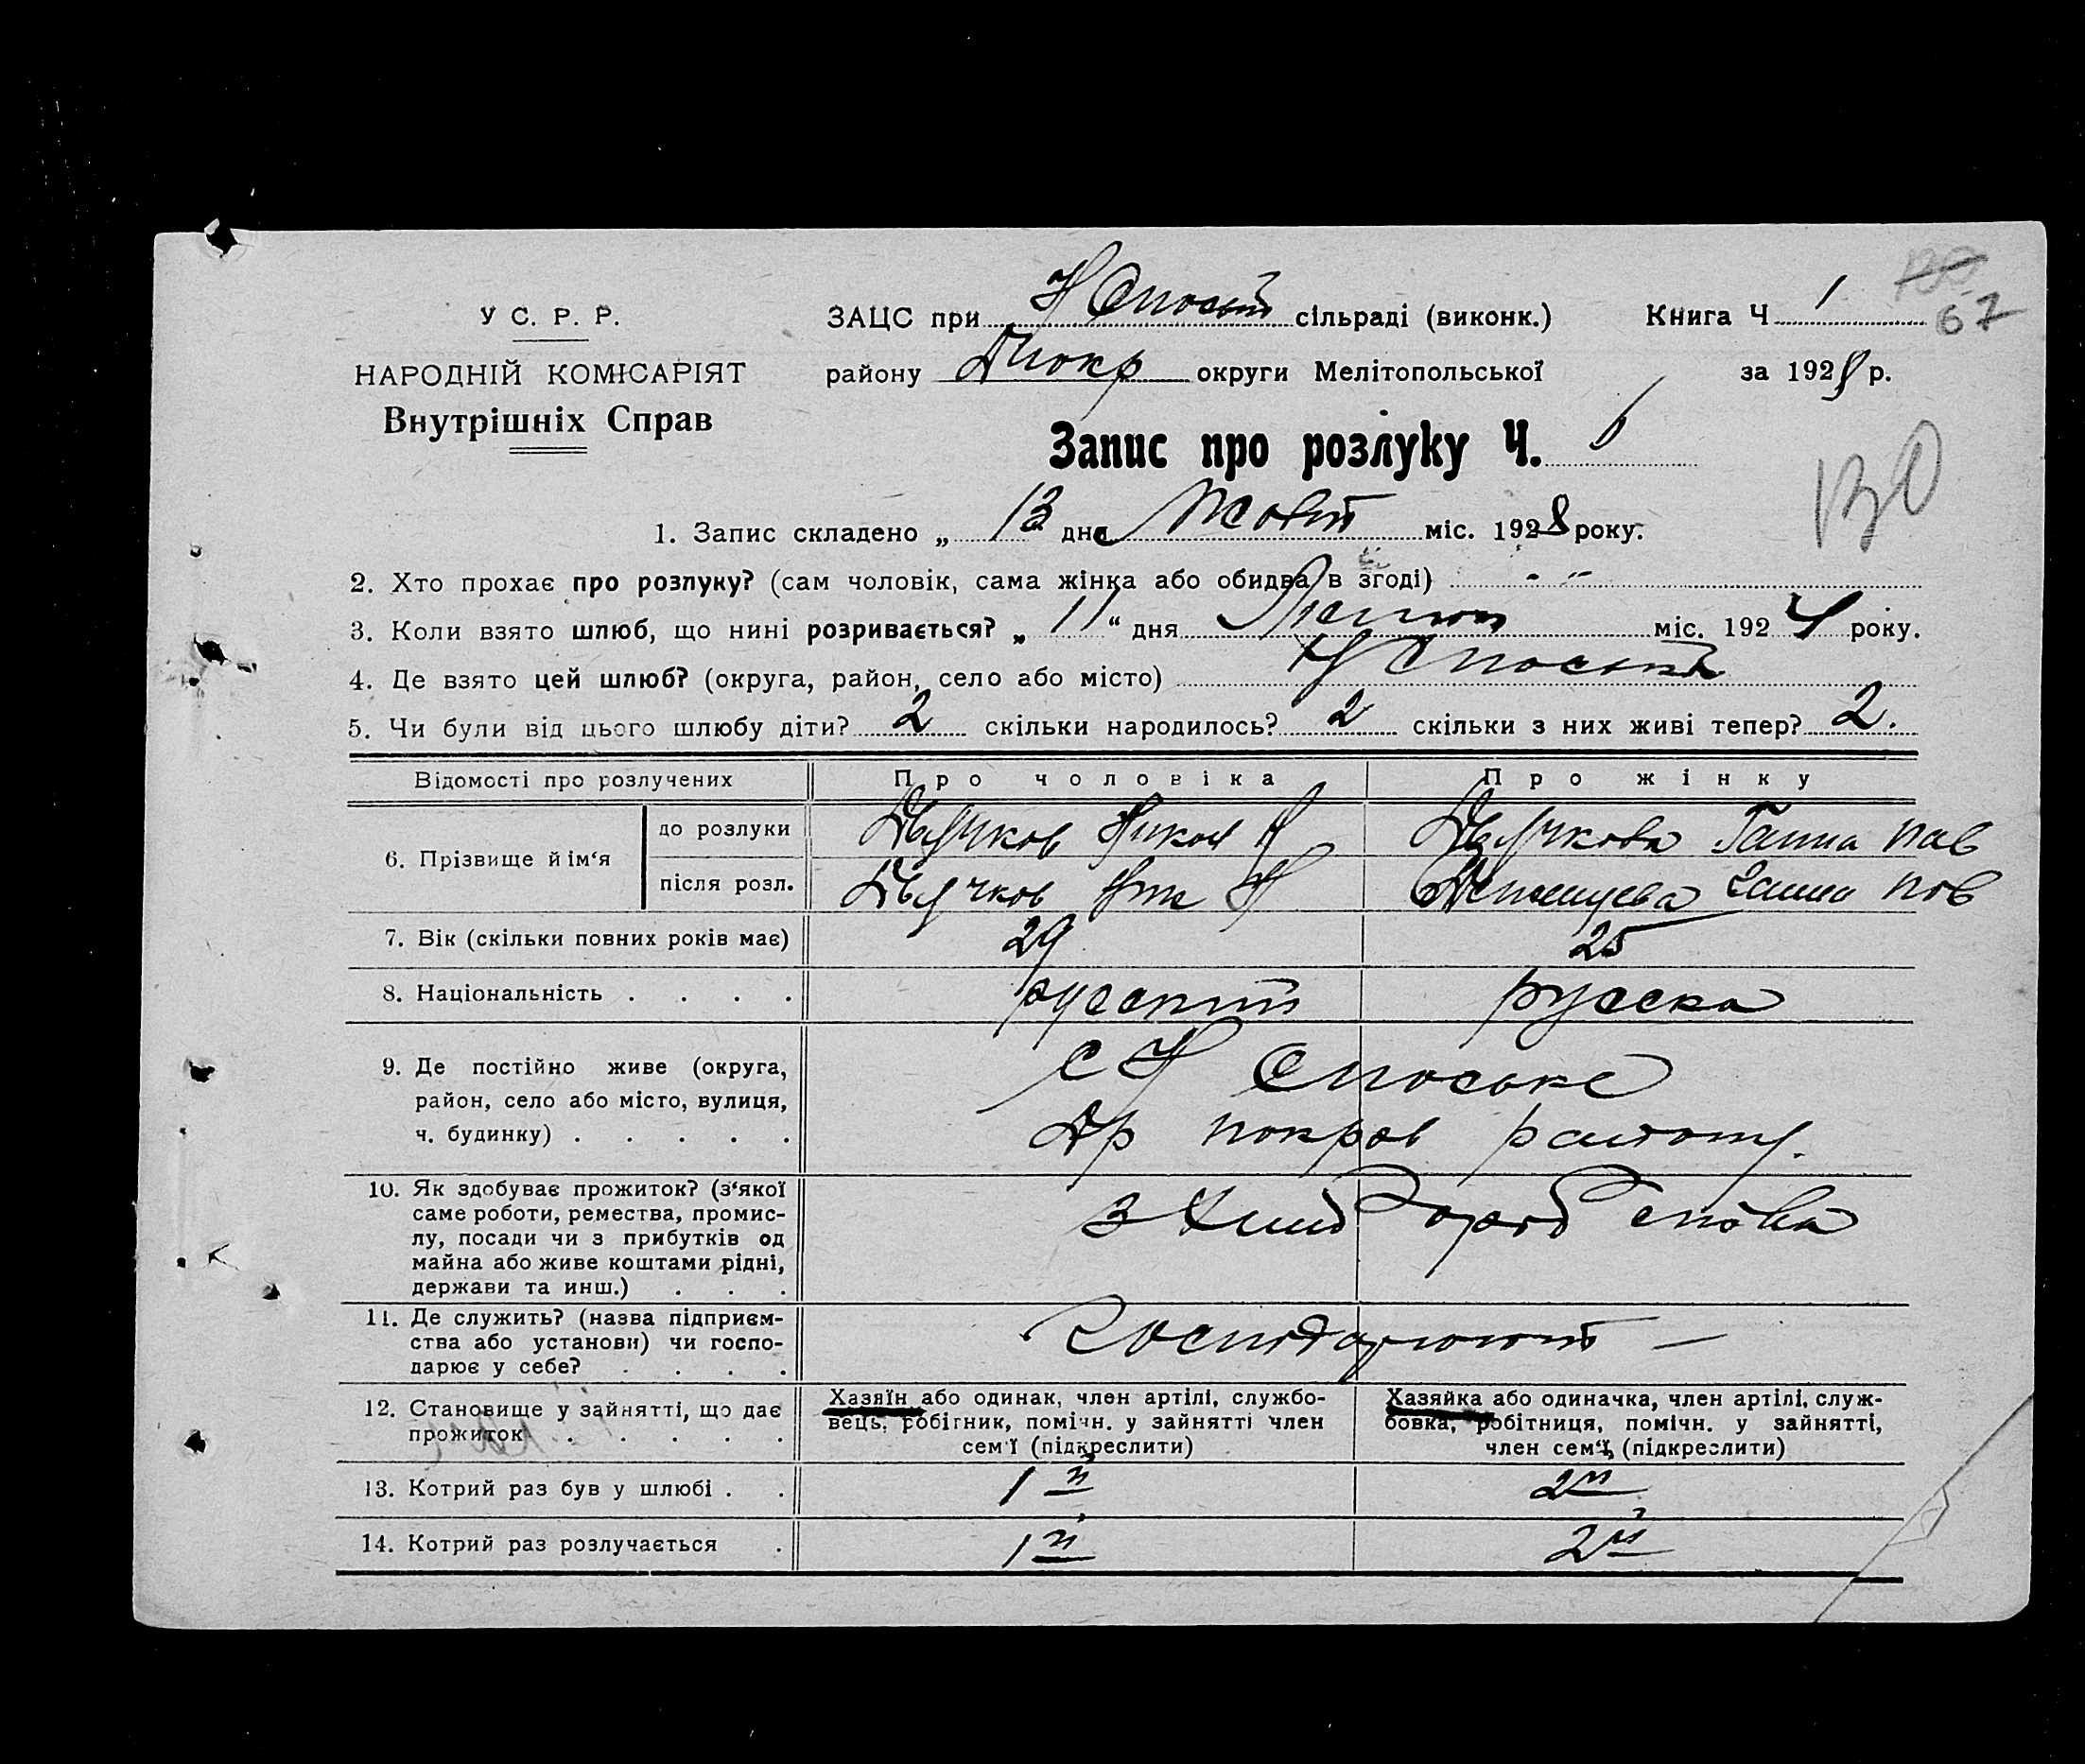 У С. Р. Р.
НАРОДНІЙ КОМІСАРІЯТ
Внутрішніх Справ
ЗАЦС при Н Спаськ сільраді (виконк.)
Книга Ч 1
67
району округи Мелітопольської
за 1928 р.
Запис про розлуку Ч. 6
130
1. Запис складено „ 13 дня Жовт міс. 1928 року.
2. Хто прохає про розлуку? (сам чоловік, сама жінка або обидва в згоді)
3. Коли взято шлюб, що нині розривається? „ 11 “ дня міс. 1924 року.
4. Де взято цей шлюб? (округа, район, село або місто) Н
5. Чи були від цього шлюбу діти? 2 скільки народилось? 2 скільки з них живі тепер? 2.
Відомості про розлучених Про чоловіка Про жінку
6. Прізвище й ім‘я
до розлуки Дьячков Никол Дьячкова Ганна Пав
після розл. Дьячков Ганна Пав
7. Вік (скільки повних років має) 29 25
8. Національність . . . . руський русска
9. Де постійно живе (округа,
район, село або місто, вулиця,
ч. будинку) . . . . .
с Н Спаське
покров району.
10. Як здобуває прожиток? (з‘якої
саме роботи, ремества, промис-
лу, посади чи з прибутків од
майна або живе коштами рідні,
держави та инш.) . . .
З
11. Де служить? (назва підприєм-
ства або установи) чи госпо-
дарює у себе? . . . .
Господарюють —
12. Становище у зайнятті, що дає
прожиток . . . . .
Хазяїн або одинак, член артілі, службо-
вець, робігник, помічн. у зайнятті член
сем‘ї (підкреслити)
Хазяйка або одиначка, член артілі, служ-
бовка, робітниця, помічн. у зайнятті,
член сем‘ї, (підкреслити)
13. Котрий раз був у шлюбі . . 1й 2й
14. Котрий раз розлучається . 1й 2й